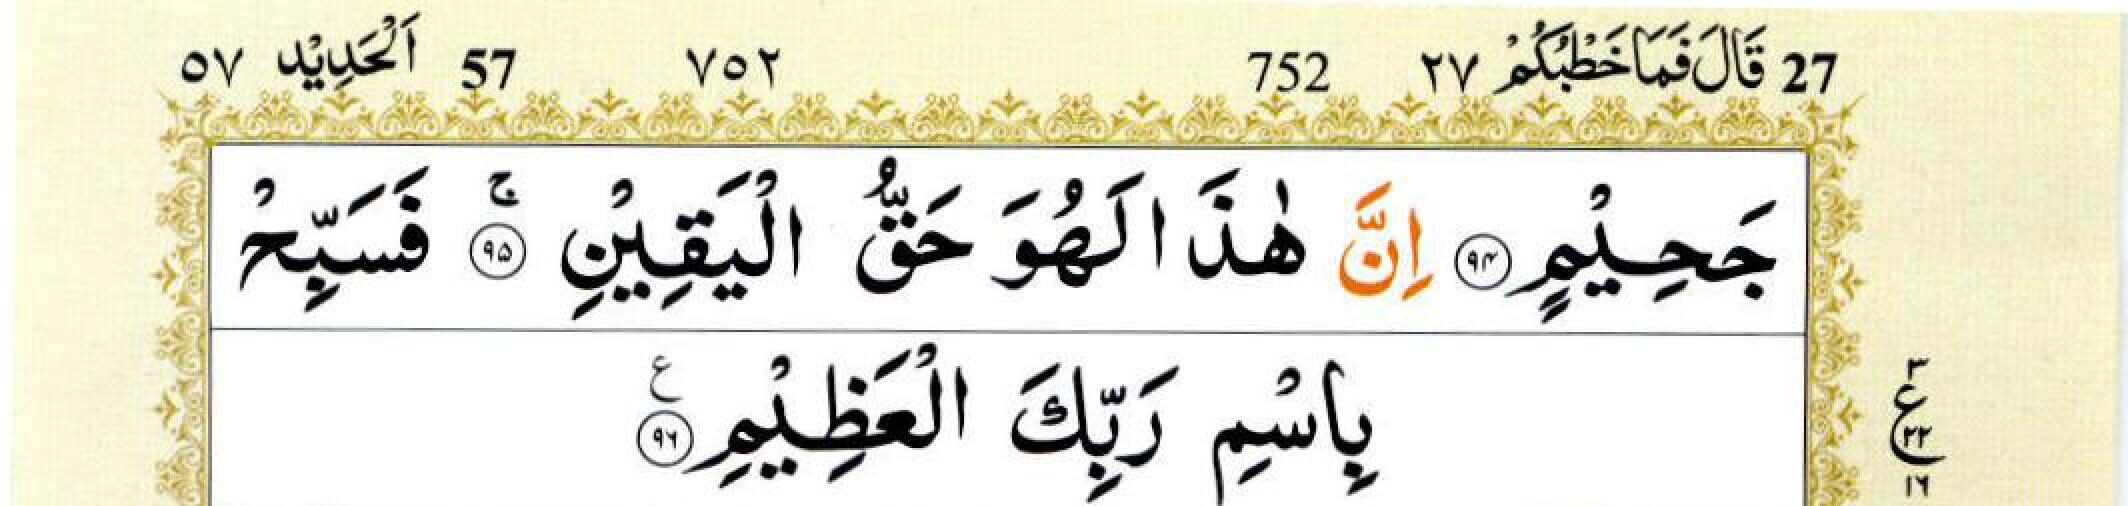 27 قَالَ فَمَا خَطْبُكُمْ ٢٧ 752 ٧٥٢ 57 اَلْحَدِيْد ٥٧
جَحِيْمٍ ۹۴ اِنَّ هٰذَا لَهُوَ حَقُّ الْيَقِيْنِ ۚ ۹۵ فَسَبِّحْ
بِاسْمِ رَبِّكَ الْعَظِيْمِ ع ۹۶
٣
ع
٢٢
١٦